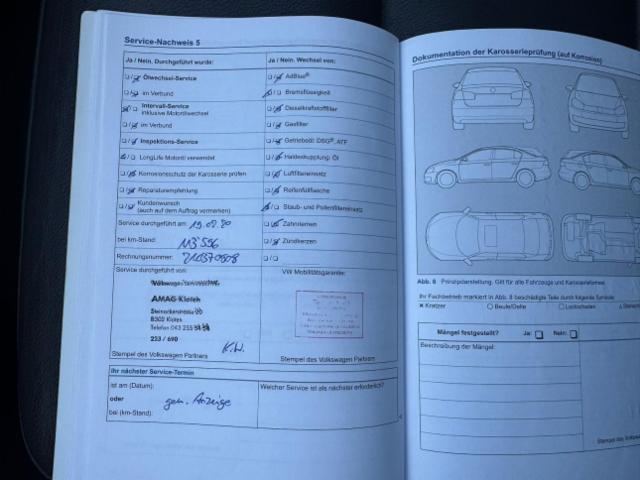 Service-Nachweis 5
Ja / Nein. Durchgeführt wurde:
Ja / Nein. Wechsel von:
Ölwechsel-Service
AdBlue®
im Verbund
Bremsflüssigkeit
Intervall-Service
inklusive Motorölwechsel
Dieselkraftstofffilter
im Verbund
Gasfilter
Inspektions-Service
Getriebeöl: DSG®, ATF
LongLife Motoröl verwendet
Haldexkupplung: Öl
Korrosionsschutz der Karosserie prüfen
Luftfiltereinsatz
Reparaturempfehlung
Reifenfüllflasche
Kundenwunsch
(auch auf dem Auftrag vermerken)
Staub- und Pollenfiltereinsatz
Service durchgeführt am:
Zahnriemen
bei km-Stand: 113'556
Zündkerzen
Rechnungsnummer:
Service durchgeführt von:
VW Mobilitätsgarantie:
AMAG Kloten
8302 Kloten
Telefon 043 255
233 / 690
K.W.
Stempel des Volkswagen Partners
Stempel des Volkswagen Partners
Ihr nächster Service-Termin
ist am (Datum):
Welcher Service ist als nächster erforderlich?
oder
gem. Anzeige
bei (km-Stand):
Dokumentation der Karosserieprüfung (auf Korrosion)
Abb. 8 Prinzipdarstellung: Gilt für alle Fahrzeuge und Karosserieformen.
Ihr Fachbetrieb markiert in Abb. 8 beschädigte Teile durch folgende Symbole:
× Kratzer
○ Beule/Delle
□ Lackschaden
Mängel festgestellt?
Ja:
Nein:
Beschreibung der Mängel:
Stempel des Volksw